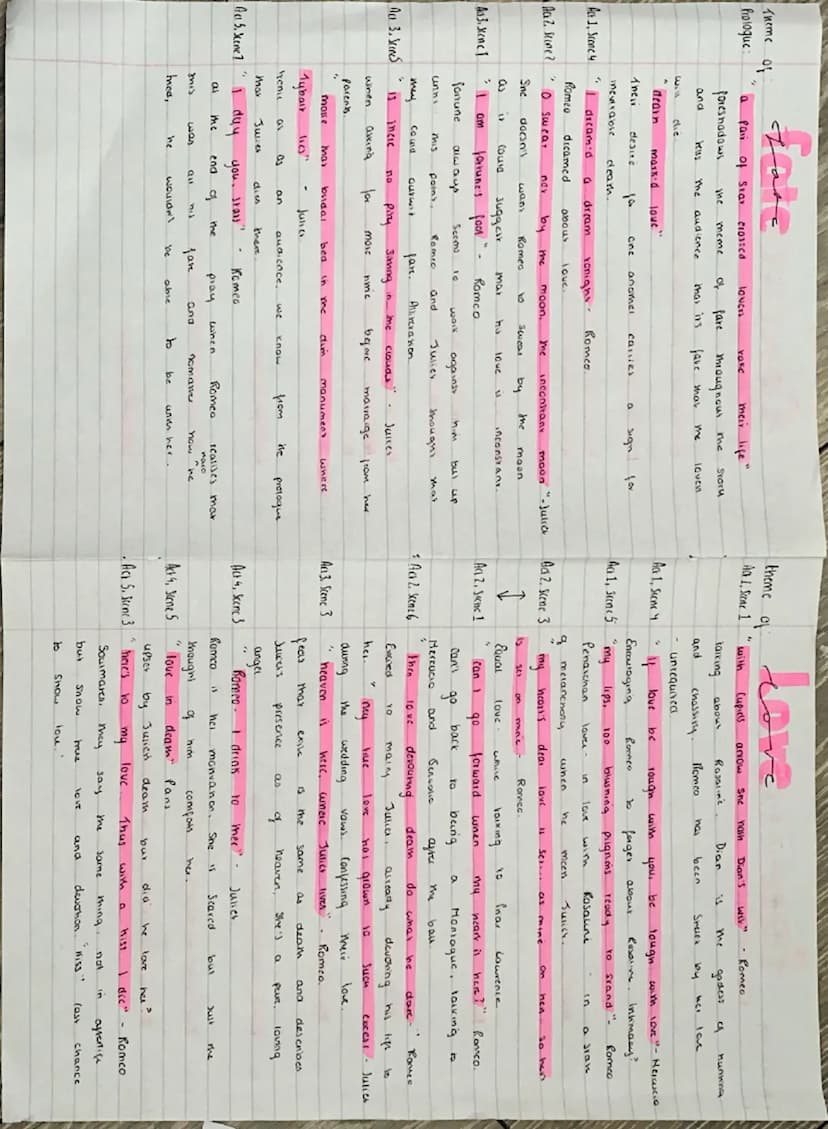 Theme of: fate
Prologue: "a pair of star crossed lovers take their life"
foreshadows the theme of fate throughout the story
and tells the audience that its fate that the lovers
will die.
"death mark'd love"
Their desire for one another carries a sign for
inevitable death.
Act 1, Scene 4 "I dream'd a dream tonight - Romeo.
Romeo dreamed about love.
Act 2, Scene 2 "O swear not by the moon, the inconstant moon" - Juliet
She doesn't want Romeo to swear by the moon
as it could suggest that his love is inconstant.
Act 3, Scene 1 "I am fortunes fool" - Romeo
fortune always seems to work against him but up
until this point, Romeo and Juliet thought that
they could outwit fate. Aliteration
Act 3, Scene 5 "is there no pity sitting in the clouds" - Juliet
when asking for more time before marraige from her
parents.
"make that bridal bed in the dim monument where
Tybalt lies" - Juliet
Ironic as as an audience, we know from the prologue
that Juliet dies there.
Act 5, Scene 1 "I defy you, stars" - Romeo
at the end of the play when Romeo realises that
this was all his fate and nomatter how he
tried, he wouldn't be able to be with her.
theme of: Love
Act 1, Scene 1 "with Cupids arrow she hath Dian's wit" - Romeo
talking about Rosaline. Dian is the godess of hunting
and chastity. Romeo has been struck by her love
- unrequited
Act 1, Scene 4 "If love be rough with you be rough with love" - Mercutio
Encouraging Romeo to forget about Rosaline. Intimacy?
Act 1, Scene 5 "my lips, too blushing pilgrims ready to stand" - Romeo
Petrarchan lover - in love with Rosaline - in a state
of melancholy when he meets Juliet.
Act 2, Scene 3 "my hearts dear love is set... as mine on hers so hers
is set on mine - Romeo.
Equal love - while talking to friar Lawrence
Act 2, Scene 1 "can I go forward when my heart is here?" Romeo.
Can't go back to being a Montague, talking to
Mercutio and Benvolio after the ball
Act 2, Scene 6 "then love devouring death do what he dare -" Romeo
Excited to marry Juliet, already devoting his life to
her. "my true love has grown to such excess - Juliet
during the wedding vows. Confessing their love.
Act 3, Scene 3 "heaven is here, where Juliet lives" - Romeo.
fears that exile is the same as death and describes
Juliets presence as of heaven, she's a pure, loving
angel
Act 4, Scene 3 "Romeo - I drink to thee" - Juliet
Romeo is her motivation. She is scared but just the
thought of him comforts her.
Act 4, Scene 5 "love in death" Paris
upset by Juliets death but did he love her?
Act 5, Scene 3 "heres to my love. Thus with a kiss I die" - Romeo
Soulmates. They say the same thing, not in
but show true love and devotion "kiss" last chance
to show love.